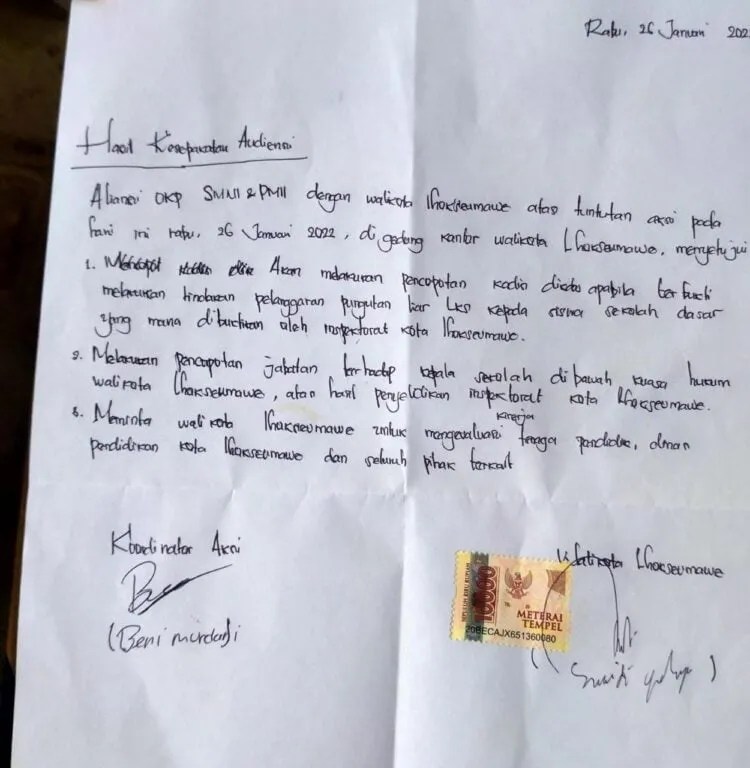 Rabu, 26 Januari 202
Hasil Kesepakatan Audiensi
Aliansi OKP SMNI & PMII dengan walikota lhokseumawe atas tuntutan aksi pada
hari ini rabu, 26 Januari 2022, di gedung kantor walikota Lhokseumawe, menyetujui
1. Akan melakukan pencopotan kadis dinas apabila terbukti
melakukan tindakan pelanggaran pungutan liar LKS kepada siswa sekolah dasar
yang mana dibuktikan oleh inspektorat kota lhokseumawe.
2. Melakukan pencopotan jabatan terhadap kepala sekolah dibawah kuasa hukum
walikota lhokseumawe, atas hasil penyelidikan inspektorat kota lhokseumawe.
kinerja
3. Meminta walikota lhokseumawe untuk mengevaluasi tenaga pendidik, dinas
pendidikan kota lhokseumawe dan seluruh pihak terkait
Koordinator Aksi
Walikota Lhokseumawe
SEPULUH RIBU RUPIAH
10000
METERAI
TEMPEL
20BECAJX651360080
(Beni murdani)
(Suaidi yahya)